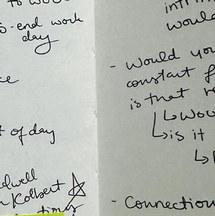 to wo
-end work
day
ce
t of day
dwell
n Kolbert
intri
would
- Would you
constant f
is that re
↳ Wou
↳ is it
↳
- Connection